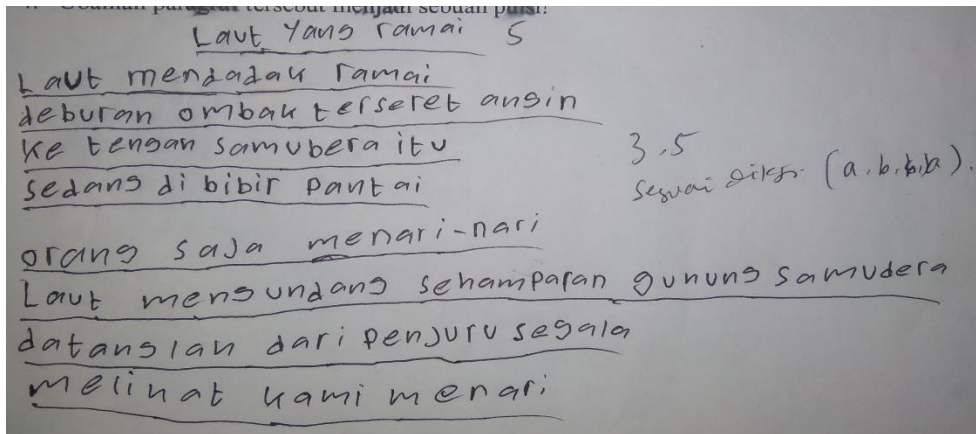 4. Ubahlah paragraf tersebut menjadi sebuah puisi!
Laut Yang ramai 5
Laut mendadak ramai
deburan ombak terseret angin
ke tengah samubera itu
sedang di bibir pantai
3.5
sesuai diksi (a.b.b.a).
orang saja menari-nari
Laut mengundang sehamparan gunung samudera
datanglah dari penjuru segala
melihat kami menari